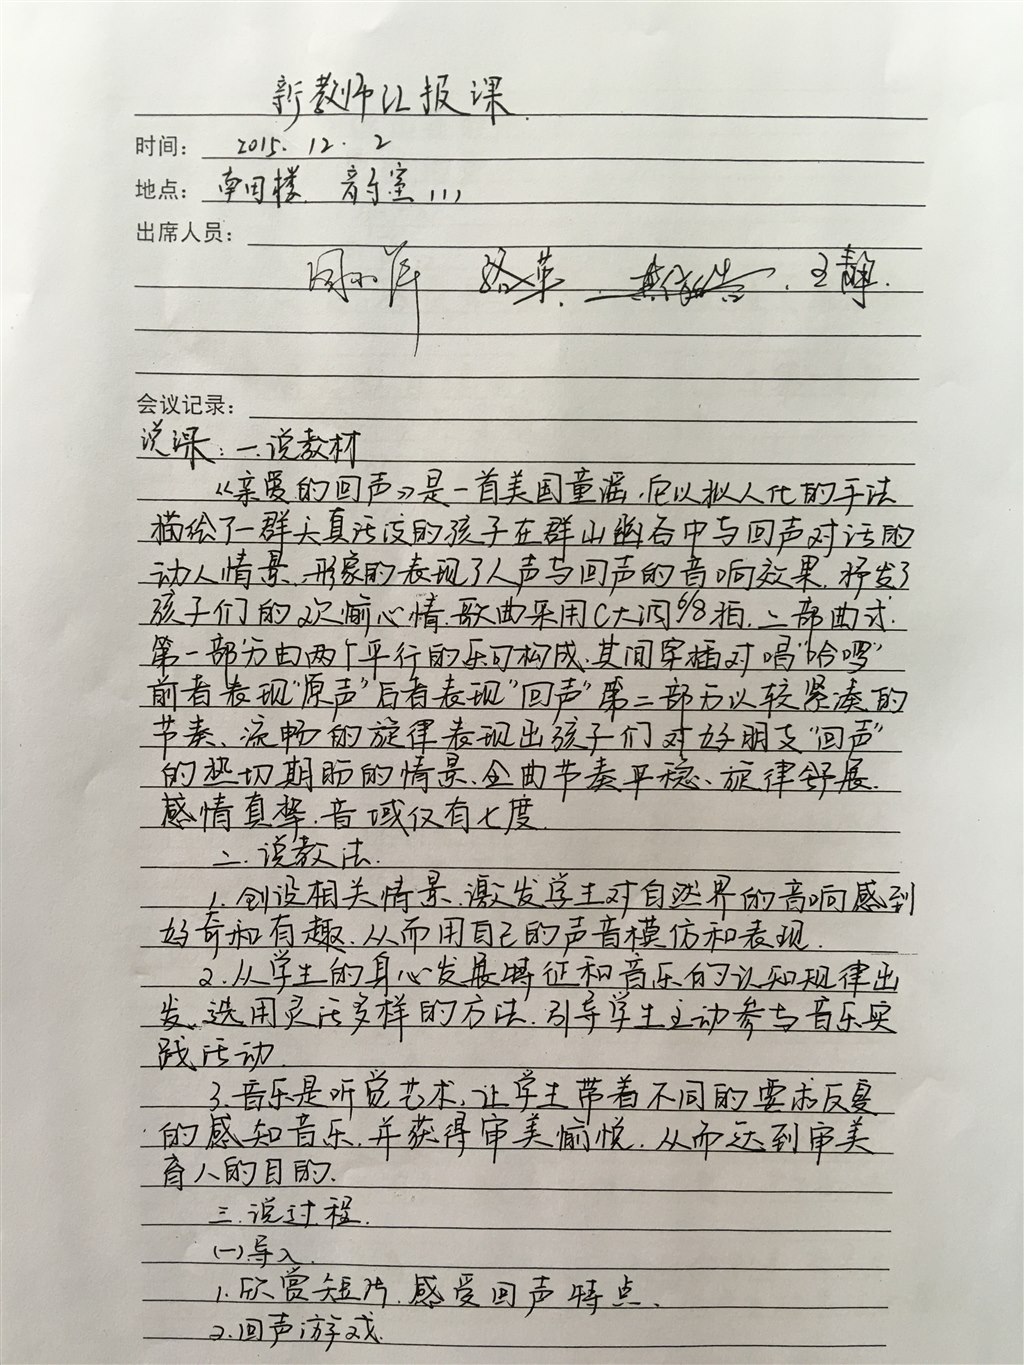 新教师汇报课.
时间： 2015. 12. 2
地点： 南田楼 音
出席人员：
王静.
会议记录：
说课：一.说教材
《亲爱的回声》是一首美国童谣.它以拟人化的手法
描绘了一群天真活泼的孩子在群山幽谷中与回声对话的
动人情景、形象的表现了人声与回声的音响效果.抒发了
孩子们的欢愉心情.歌曲采用C大调6/8拍.二部曲式.
第一部分由两个平行的乐句构成.其间穿插对唱"哈啰"
前者表现"原声"后者表现"回声"第二部分以较紧凑的
节奏、流畅的旋律表现出孩子们对好朋友"回声"
的热切期盼的情景.全曲节奏平稳、旋律舒展.
感情真挚.音域仅有七度.
二.说教法.
1.创设相关情景.激发学生对自然界的音响感到
好奇和有趣.从而用自己的声音模仿和表现.
2.从学生的身心发展特征和音乐的认知规律出
发、选用灵活多样的方法.引导学生主动参与音乐实
践活动.
3.音乐是听觉艺术,让学生带着不同的要求反复
的感知音乐.并获得审美愉悦.从而达到审美
育人的目的.
三.说过程.
(一)导入.
1.欣赏短片.感受回声特点、
2.回声游戏.